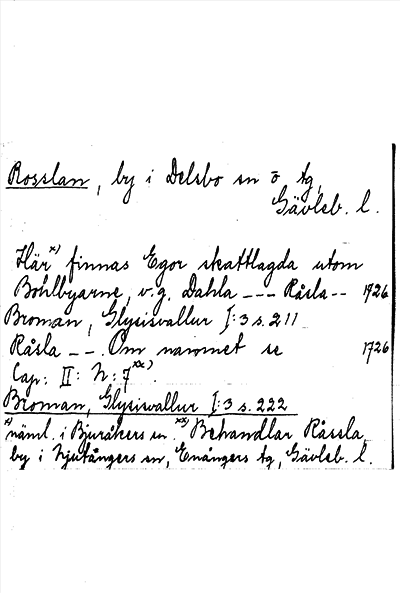 Rosslan, by i Delsbo sn ö tg,
Gävleb. l.
Här x) finnas Egor skattlagda utom
Bohlbyarne, v.g. Dahla --- Råsla -- 1726
Broman, Glysisvallur I:3 s. 211
Råsla -- . Om namnet se 1726
Cap: II: N: 7 xx).
Broman, Glysisvallur I:3 s. 222
x) näml. i Bjuråkers sn. xx) Behandlar Råssla
by i Njutångers sn, Enångers tg, Gävleb. l.